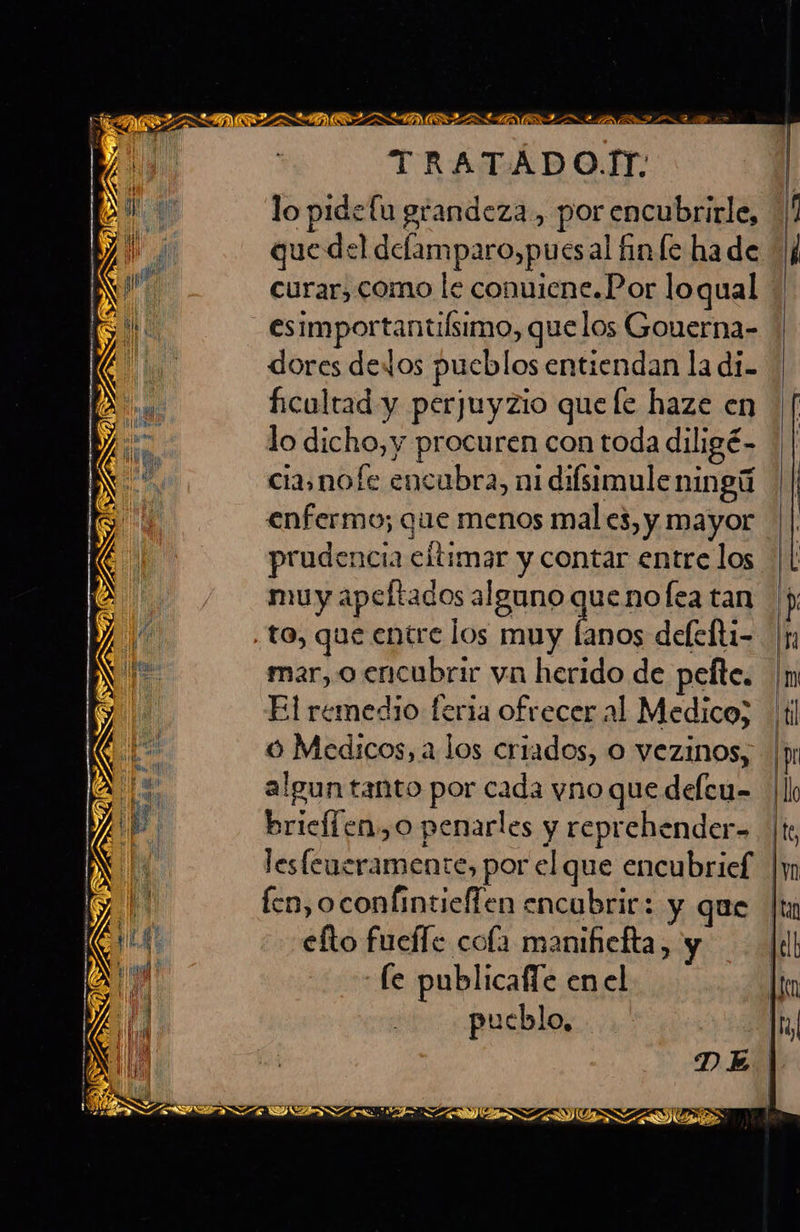 TRATADO.II.
lo pide ſu grandeza, por encubrirle,
que del deſamparo,pues al fin ſe ha de
curar, como le conuiene.Por lo qual
es importantiſsimo, que los Gouerna-
dores de los pueblos entiendan la di-
ficultad y perjuyzio que ſe haze en
lo dicho,y procuren con toda diligē-
cia, no ſe encubra, ni diſsimule ningū
enfermo; que menos mal es, y mayor
prudencia eſtimar y contar entre los
muy apeſtados alguno que no ſea tan
to, que entre los muy ſanos deſeſti-
mar, o encubrir vn herido de peſte.
El remedio ſeria ofrecer al Medico;
o Medicos, a los criados, o vezinos,
algun tanto por cada vno que deſcu-
brieſſen, o penarles y reprehender-
les ſeueramente, por el que encubrieſ
ſen, o conſintieſſen encubrir: y que
eſto fueſſe coſa manifieſta, y
ſe publicaſſe en el
pueblo,
DE